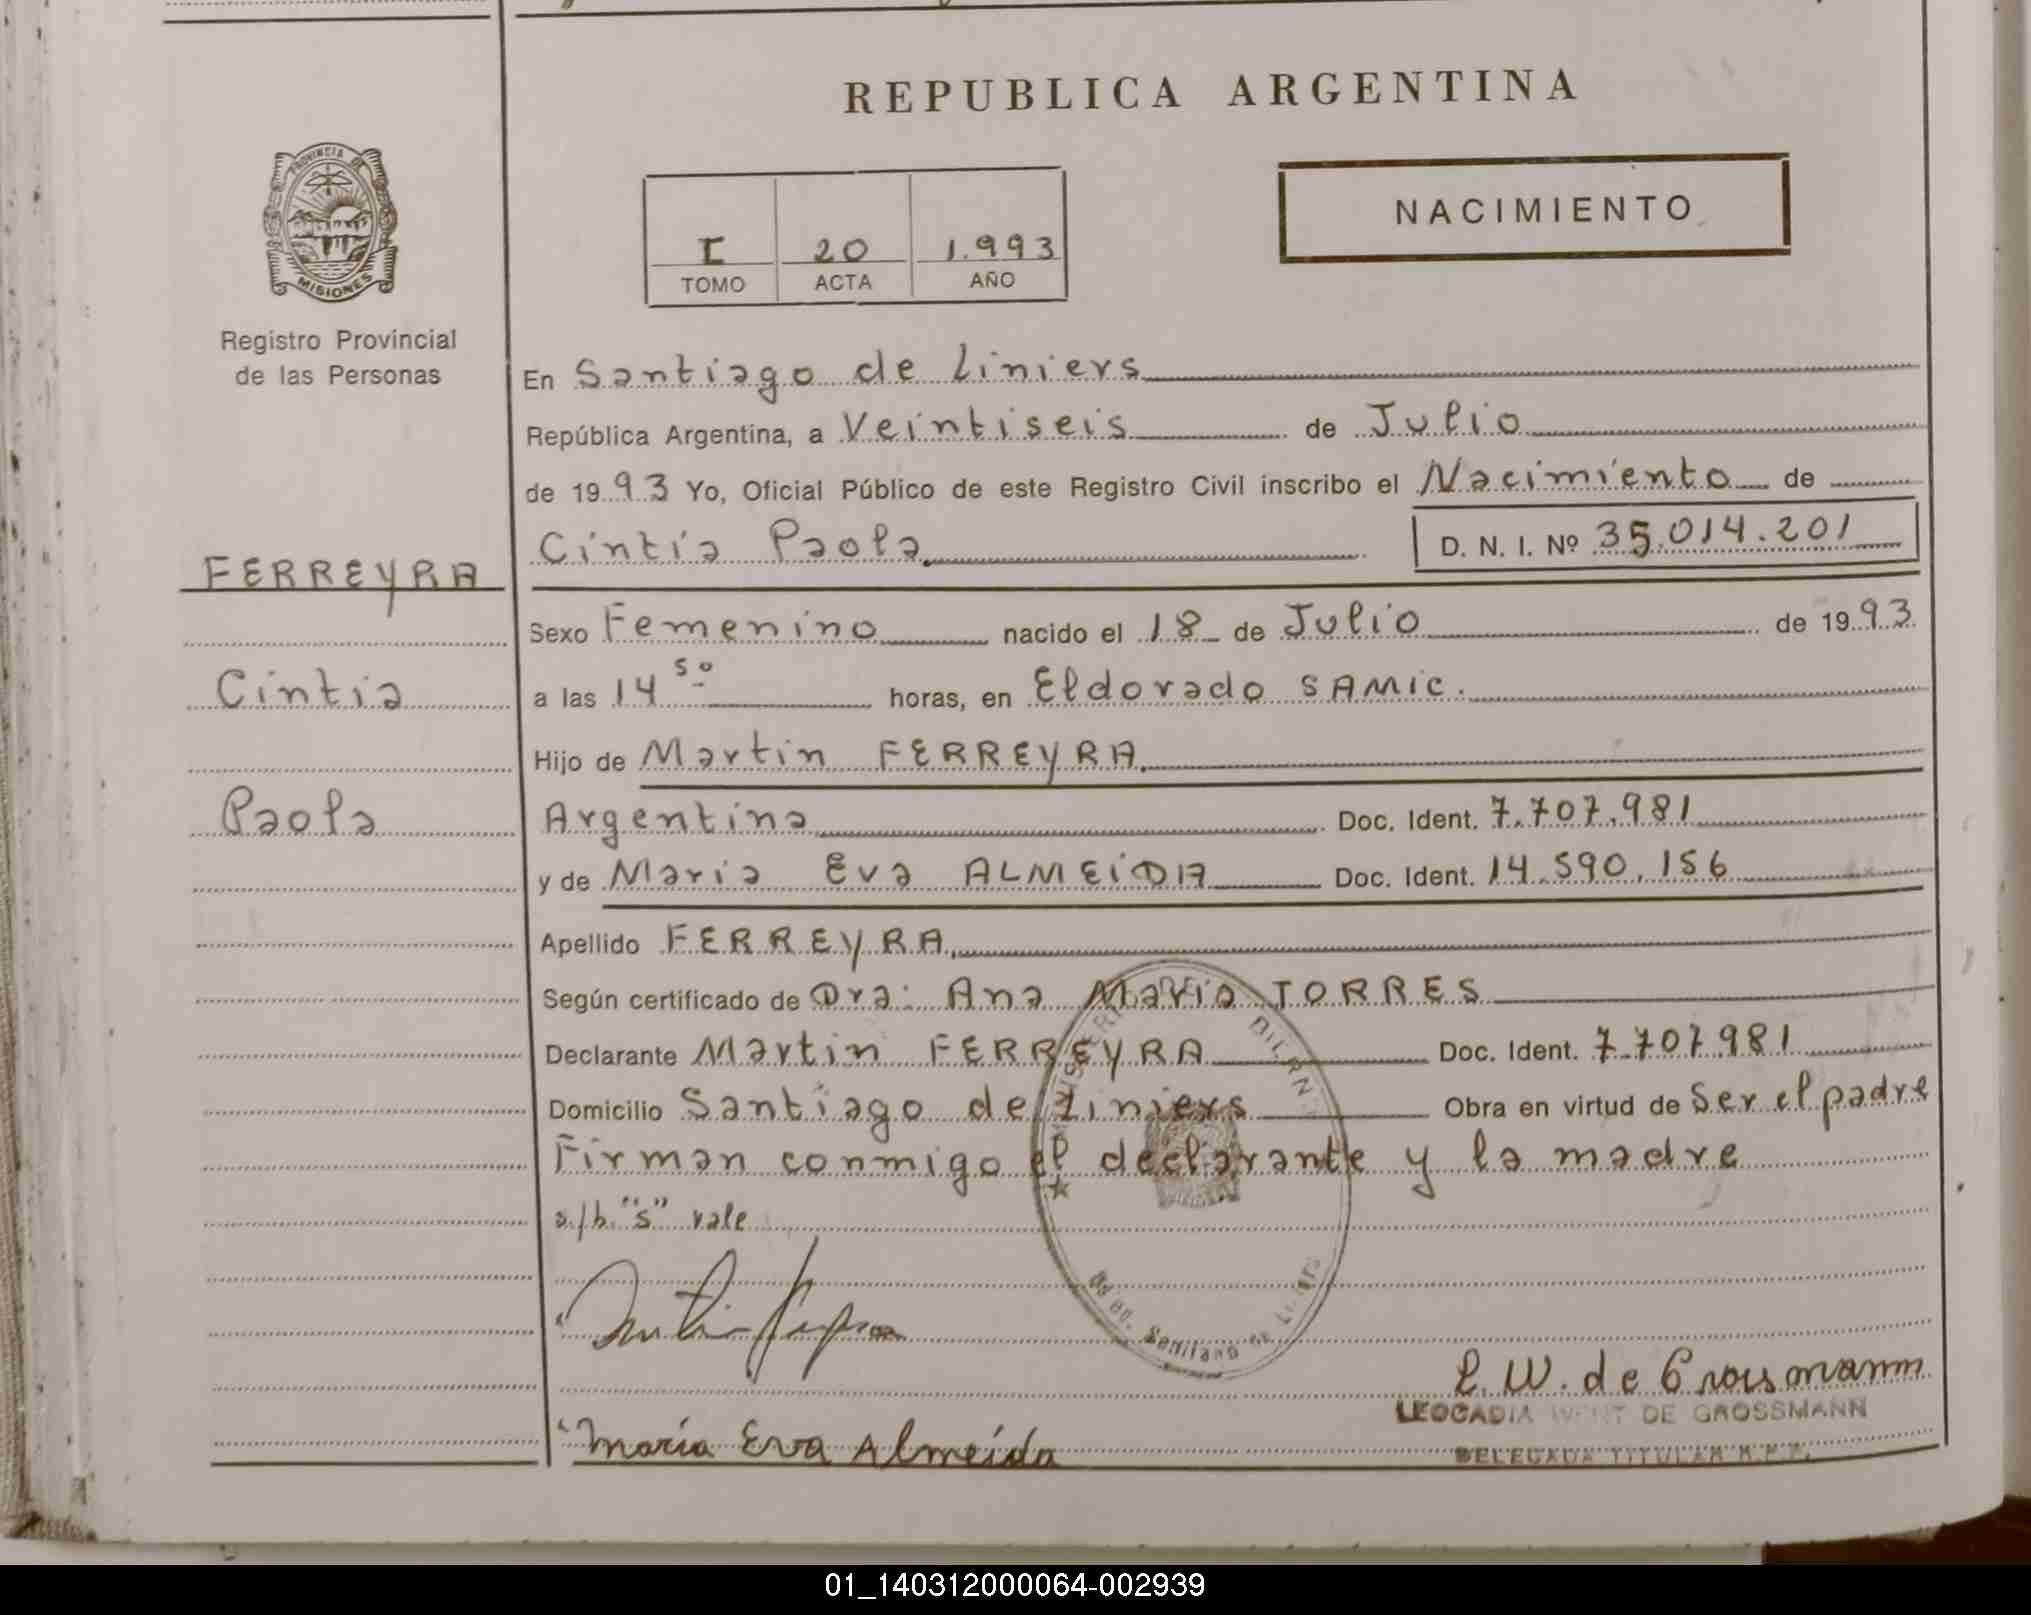 REPUBLICA ARGENTINA
PROVINCIA DE
MISIONES
Registro Provincial
de las Personas
I 20 1.993
TOMO ACTA AÑO
NACIMIENTO
En Santiago de Liniers
República Argentina, a Veintiseis de Julio
de 1993 Yo, Oficial Público de este Registro Civil inscribo el Nacimiento de
Cintia Paola D. N. I. Nº 35.014.201
FERREYRA
Cintia
Paola
Sexo Femenino nacido el 18 de Julio de 1993
a las 14 50 horas, en Eldorado SAMIC.
Hijo de Martin FERREYRA
Argentina Doc. Ident. 7.707.981
y de Maria Eva ALMEIDA Doc. Ident. 14.590.156
Apellido FERREYRA
Según certificado de Dra: Ana Maria TORRES
Declarante Martin FERREYRA Doc. Ident. 7.707.981
Domicilio Santiago de Liniers Obra en virtud de Ser el padre
Firman conmigo el declarante y la madre
s/b "S" vale
L. W. de Grossmann
LEOCADIA WENT DE GROSSMANN
DELEGADA TITULAR R.P.P.
Maria Eva Almeida
01_140312000064-002939